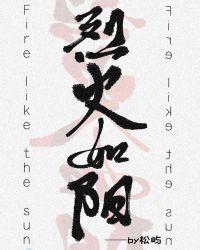 烈火如阳
Fire like the sun
Fire like the sun
——by松屿